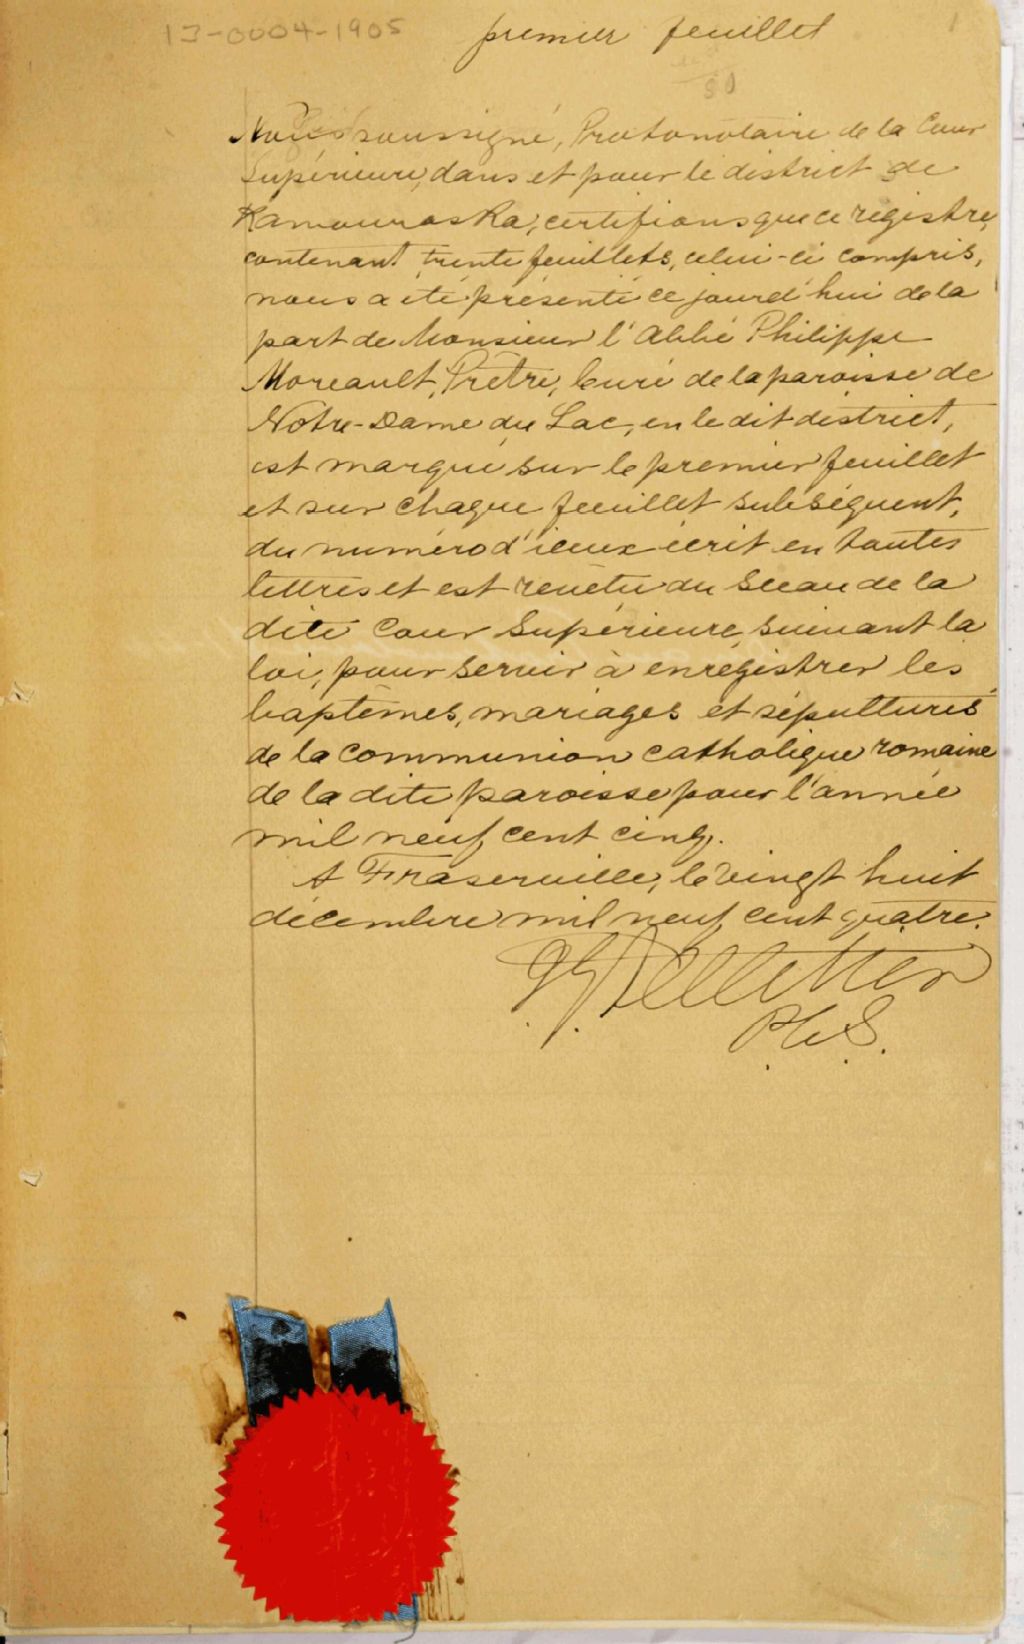 13-0004-1905
premier feuillet
1
30
Nous soussigné, Protonotaire de la Cour
Supérieure, dans et pour le district de
Kamouraska, certifions que ce régistre,
contenant trente feuillets, celui-ci compris,
nous a été présenté ce jourd'hui de la
part de Monsieur l'Abbé Philippe
Moreault, Prêtre, Curé de la paroisse de
Notre-Dame du Lac, en le dit district,
est marqué sur le premier feuillet
et sur chaque feuillet subséquent,
du numéro d'iceux écrit en toutes
lettres et est revêtu du sceau de la
dite Cour Supérieure, suivant la
loi, pour servir à enrégistrer les
baptêmes, mariages et sépultures
de la communion catholique romaine
de la dite paroisse pour l'année
mil neuf cent cinq.
A Fraserville, le vingt huit
décembre mil neuf cent quatre.
Pelletier
P.C.S.